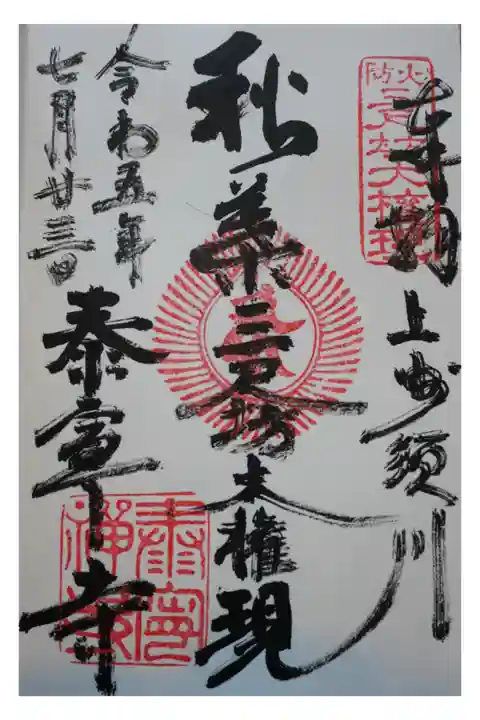 奉拝
上州須川
秋葉三尺坊大権現
令和五年
七月廿三日
泰寧寺
火防
三尺坊大権現
泰寧禅寺